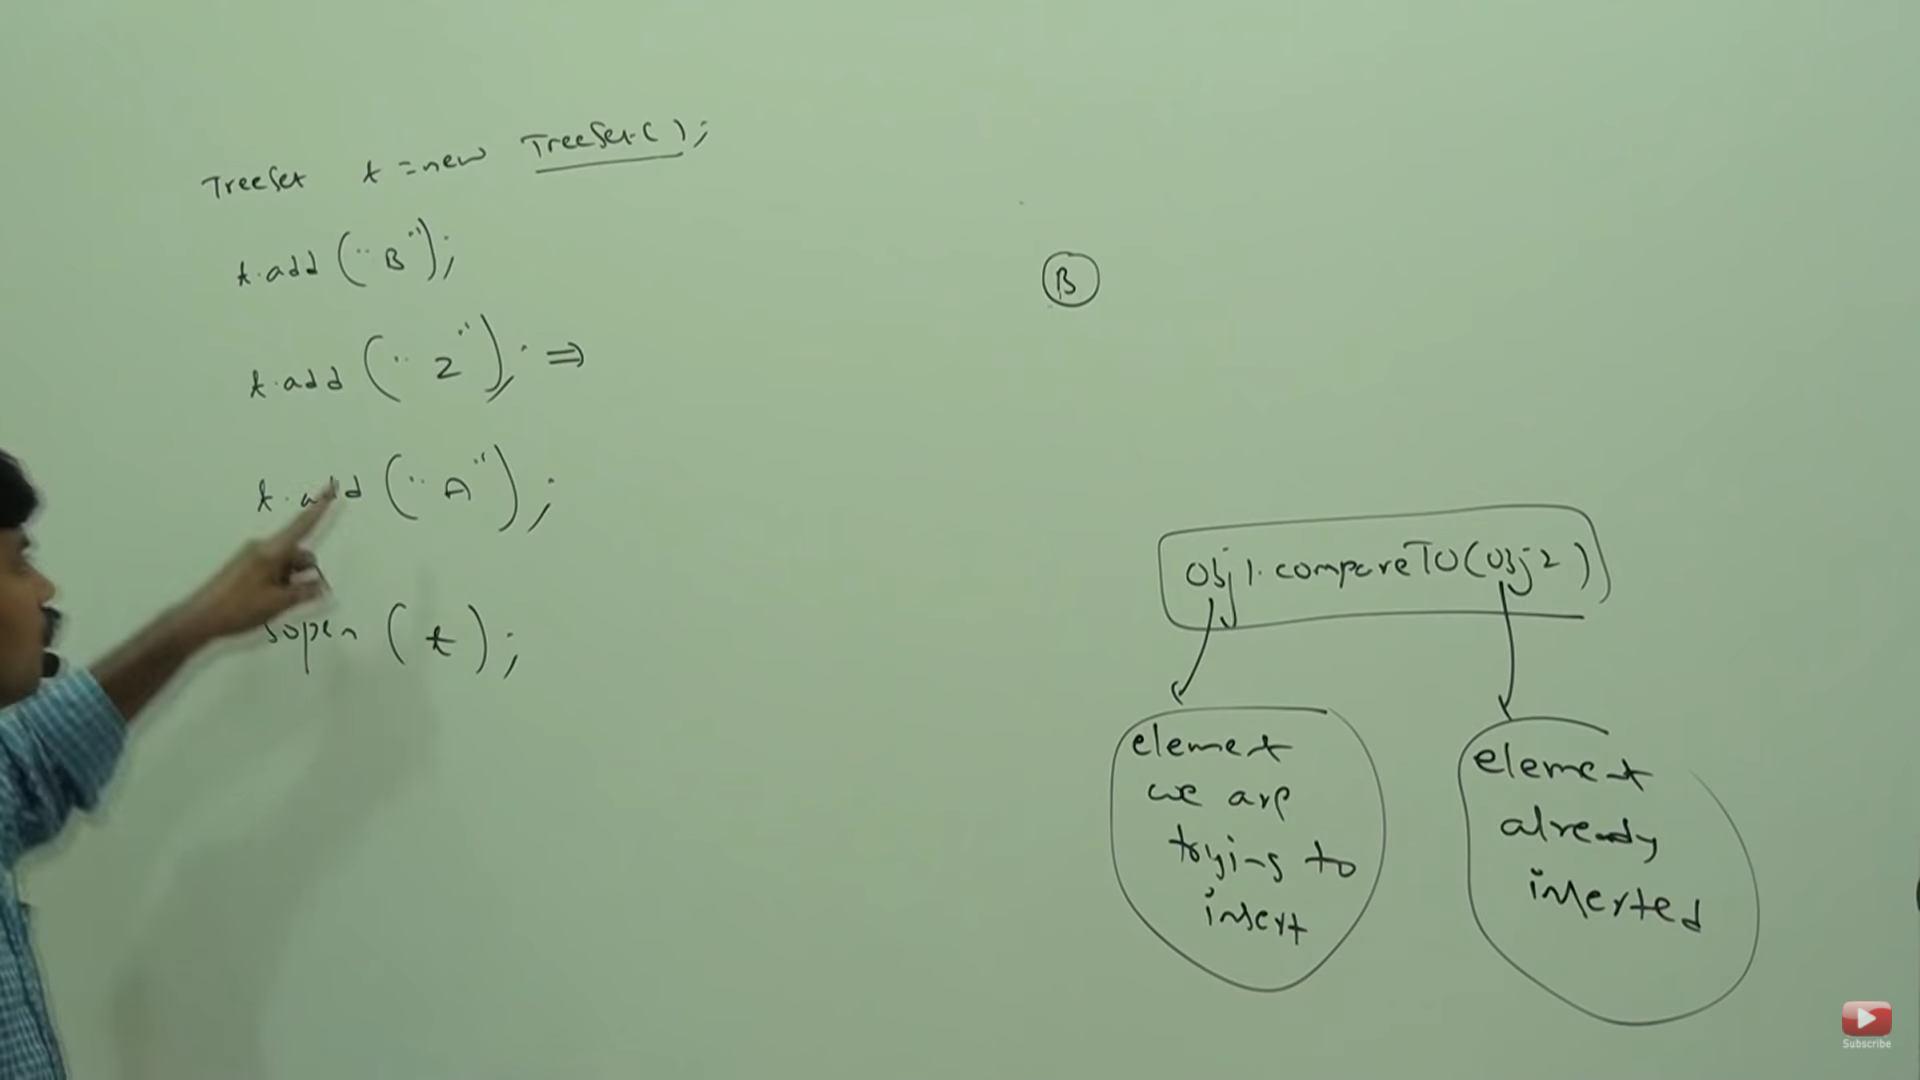 TreeSet t = new TreeSet();
t.add("B");
t.add("Z"); ⇒
t.add("A");
sopln(t);
B
obj1.compareTo(obj2)
element
we are
trying to
insert
element
already
inserted
Subscribe